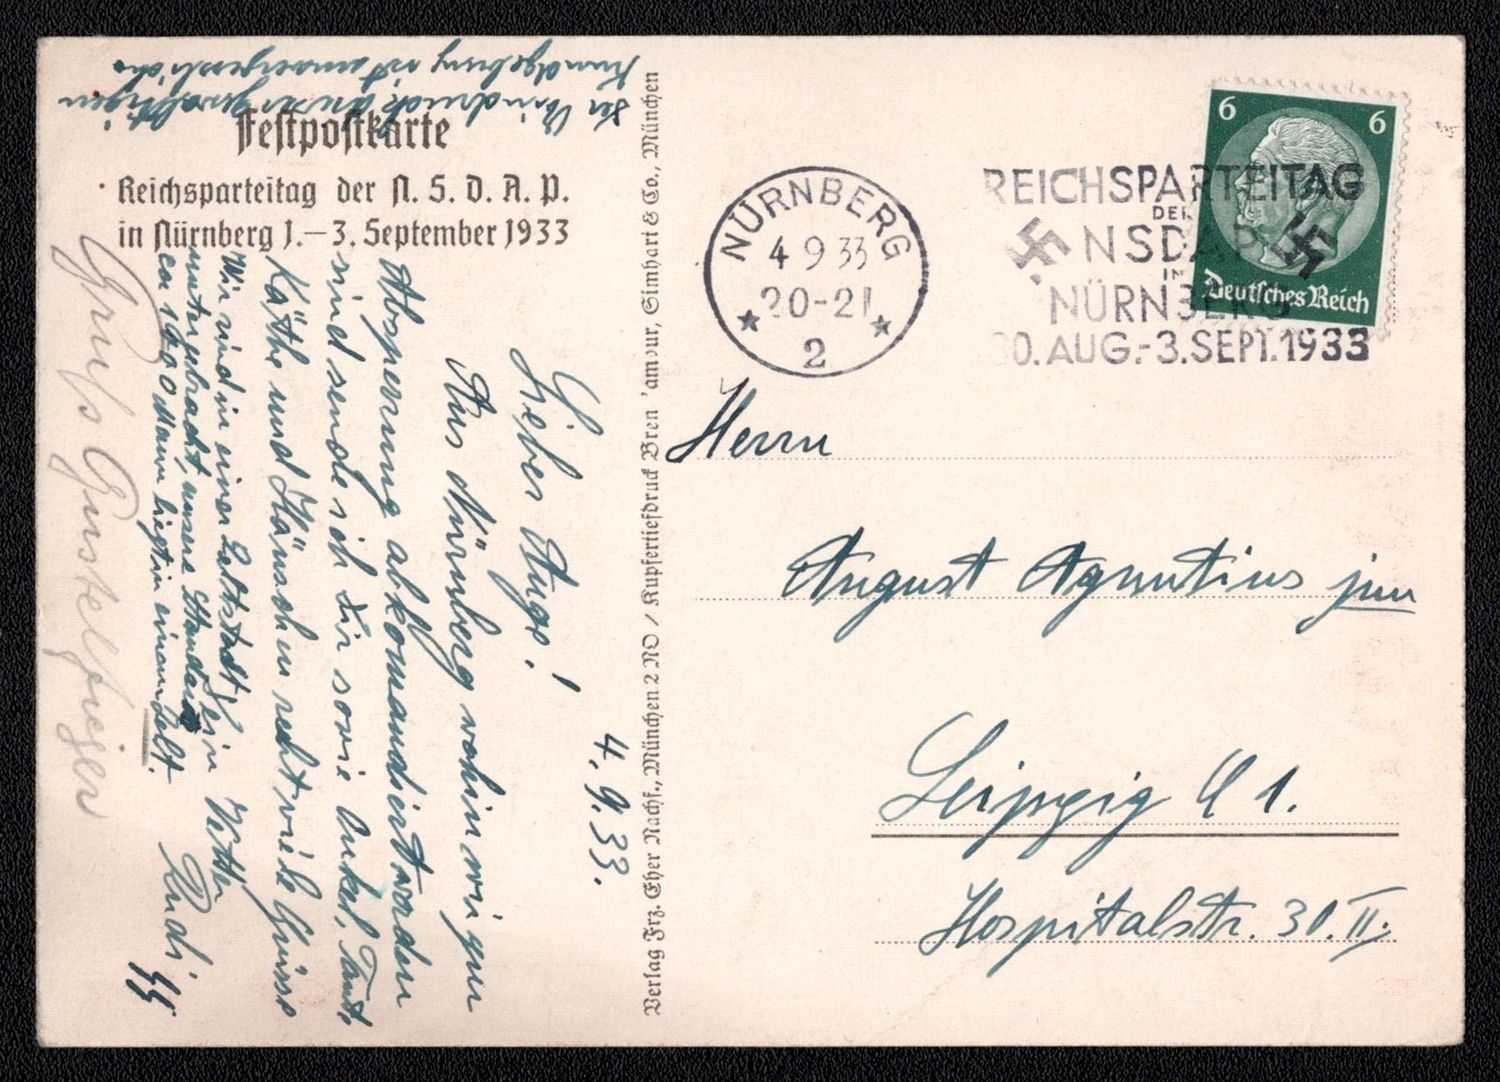 Festpostkarte
Reichsparteitag der N. S. D. A. P.
in Nürnberg 1.–3. September 1933
4. 9. 33.
Lieber Augs!
Aus Nürnberg wohin wir zur
Absperrung abkomandiert worden
sind sende ich Dir sowie Onkel, Tante
Käthe und Hänschen recht viele Grüsse
Wir sind in einer Zeltstadt
untergebracht, unsere Standarte
ca 1600 Mann liegt in einem Zelt.
Dein Vetter
Rudi
Der Eindruck dieser gewaltigen
Kundgebung ist unvergesslich.
Gruß Gustel
Verlag Frz. Eher Nachf., München 2 NO / Kupfertiefdruck Bren'amour, Simhart & Co., München
NÜRNBERG
4 9 33
20-21
2
REICHSPARTEITAG
DER
NSDAP
IN
NÜRNBERG
30. AUG.-3. SEPT. 1933
6 6
Deutsches Reich
Herrn
August Agnutius jun
Leipzig C 1.
Hospitalstr. 30. II.